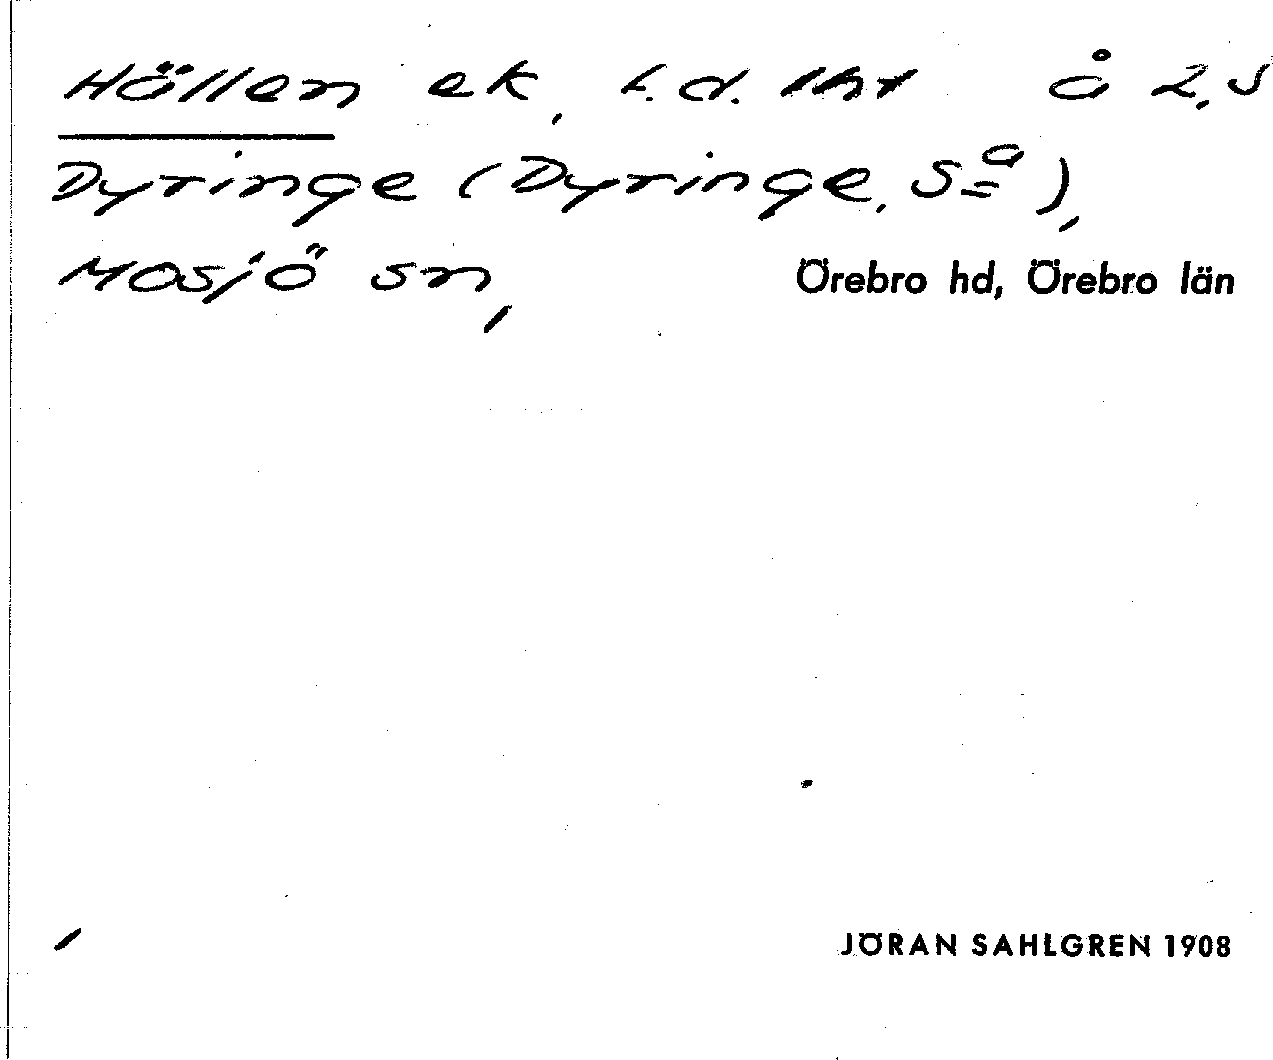 Hällen ek, f.d. lht å 2,5
Dyringe (Dyringe, Sa),
Mosjö sn, Örebro hd, Örebro län
JÖRAN SAHLGREN 1908